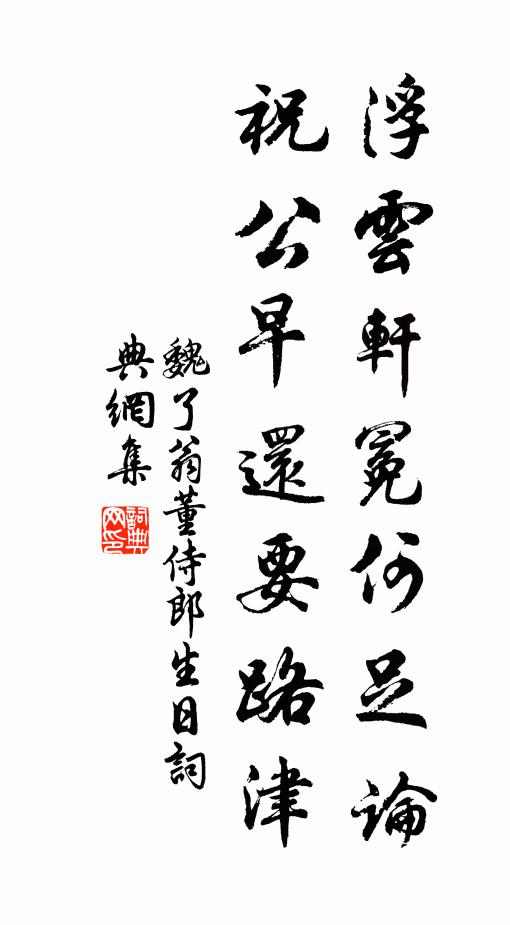 浮雲軒冕何足論
祝公早還要路津
魏了翁董侍郎生日詞
典網集
詞典网印